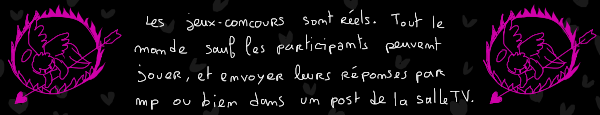 Les jeux-concours sont réels. Tout le
monde sauf les participants peuvent
jouer, et envoyer leurs réponses par
mp ou bien dans un post de la salle TV.